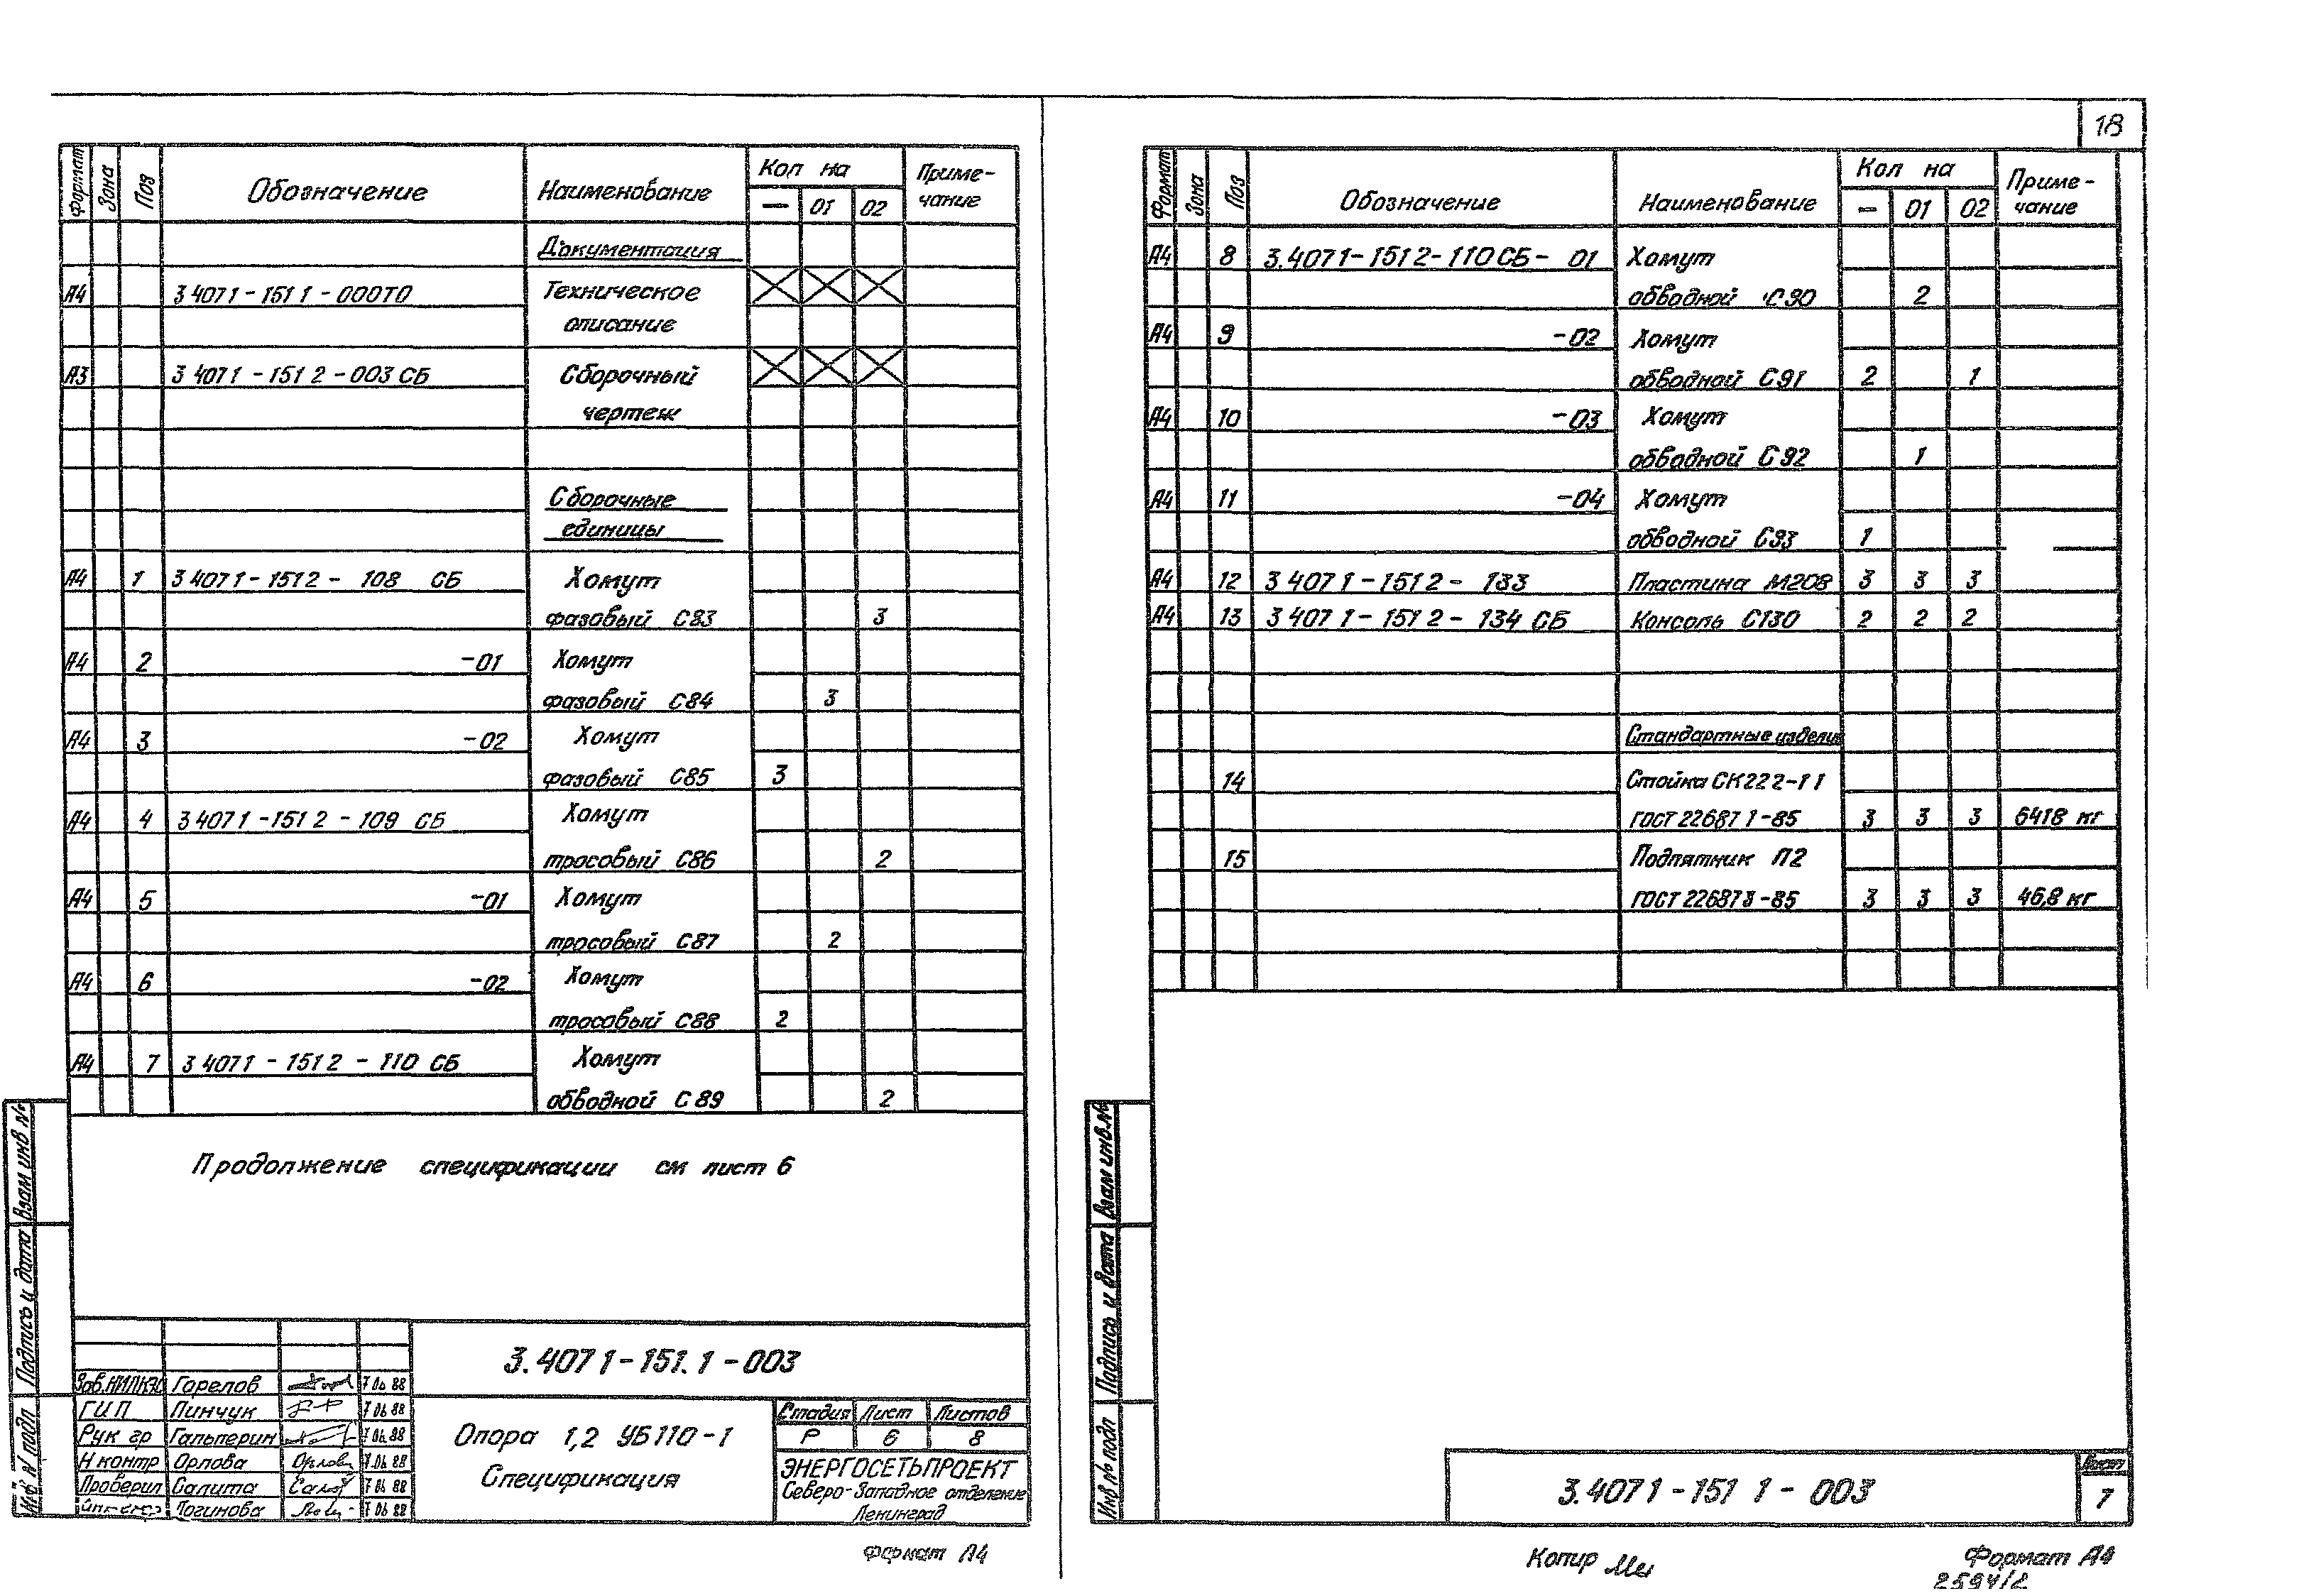 18
Формат Зона Поз Обозначение Наименование Кол на Приме-
чание
— 01 02
Документация
А4 3 407 1-151 1-000ТО Техническое
описание
А3 3 407 1-151 2-003 СБ Сборочный
чертеж
Сборочные
единицы
А4 1 3 407 1-151 2- 108 СБ Хомут
фазовый С83 3
А4 2 -01 Хомут
фазовый С84 3
А4 3 -02 Хомут
фазовый С85 3
А4 4 3 407 1-151 2-109 СБ Хомут
тросовый С86 2
А4 5 -01 Хомут
тросовый С87 2
А4 6 -02 Хомут
тросовый С88 2
А4 7 3 407 1-151 2-110 СБ Хомут
обводной С89 2
Продолжение спецификации см лист 6
Взам инв №
Подпись и дата
3.407 1-151.1-003
Зав.НИЛКЭС Гарелов 7 06 88
ГИП Пинчук 7 06 88
Рук гр Гальперин 7 06.88
Н контр Орлова Орлова 7.06 88
Проверил Салита 7 06 88
7 06 88
Опора 1,2 УБ110-1
Спецификация
Стадия Лист Листов
Р 6 8
ЭНЕРГОСЕТЬПРОЕКТ
Северо-Западное отделение
Ленинград
Формат А4
Формат Зона Поз Обозначение Наименование Кол на Приме-
чание
— 01 02
А4 8 3.407 1-151 2-110 СБ- 01 Хомут
обводной С90 2
А4 9 -02 Хомут
обводной С91 2 1
А4 10 -03 Хомут
обводной С92 1
А4 11 -04 Хомут
обводной С93 1
А4 12 3 407 1-151 2- 133 Пластина М208 3 3 3
А4 13 3 407 1-151 2- 134 СБ Консоль С130 2 2 2
Стандартные изделия
14 Стойка СК222-1 1
ГОСТ 22687 1-85 3 3 3 6418 кг
15 Подпятник П2
ГОСТ 22687 3-85 3 3 3 46,8 кг
Взам инв.№
Подпись и дата
Инв № подл
3.407 1-151 1-003
Лист
7
Копир
Формат А4